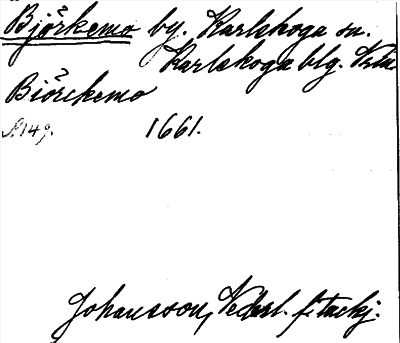 Björkemo by. Karlskoga sn.
Karlskoga blg. Vstm
Biörckemo
s. 149. 1661.
Johansson, Vederl. f. tackj.